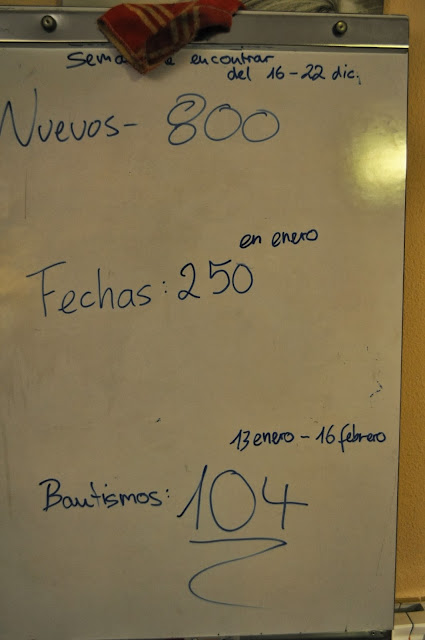 encontrar
del 16-22 dic.
Nuevos- 800
en enero
Fechas: 250
13 enero - 16 febrero
Bautismos: 104